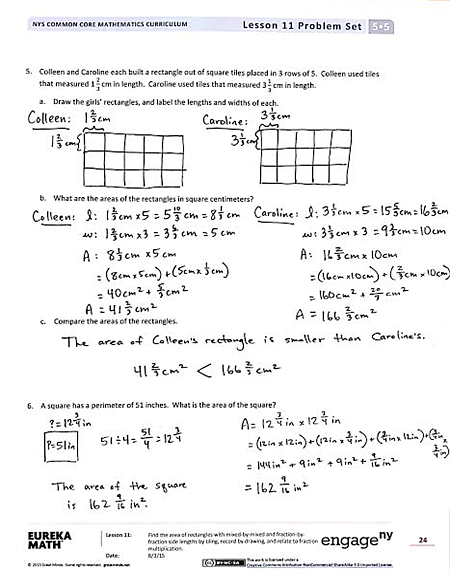 NYS COMMON CORE MATHEMATICS CURRICULUM
Lesson 11 Problem Set 5•5
5. Colleen and Caroline each built a rectangle out of square tiles placed in 3 rows of 5. Colleen used tiles
that measured 1 2/3 cm in length. Caroline used tiles that measured 3 1/3 cm in length.
a. Draw the girls' rectangles, and label the lengths and widths of each.
Colleen: 1 2/3 cm
Caroline: 3 1/3 cm
1 2/3 cm
3 1/3 cm
b. What are the areas of the rectangles in square centimeters?
Colleen: l: 1 2/3 cm x 5 = 5 10/3 cm = 8 1/3 cm
w: 1 2/3 cm x 3 = 3 6/3 cm = 5 cm
A: 8 1/3 cm x 5 cm
= (8 cm x 5 cm) + (5 cm x 1/3 cm)
= 40 cm² + 5/3 cm²
A = 41 2/3 cm²
Caroline: l: 3 1/3 cm x 5 = 15 5/3 cm = 16 2/3 cm
w: 3 1/3 cm x 3 = 9 3/3 cm = 10 cm
A: 16 2/3 cm x 10 cm
= (16 cm x 10 cm) + (2/3 cm x 10 cm)
= 160 cm² + 20/3 cm²
A = 166 2/3 cm²
c. Compare the areas of the rectangles.
The area of Colleen's rectangle is smaller than Caroline's.
41 2/3 cm² < 166 2/3 cm²
6. A square has a perimeter of 51 inches. What is the area of the square?
? = 12 3/4 in
P = 51 in
51 ÷ 4 = 51/4 = 12 3/4
The area of the square
is 162 9/16 in².
A = 12 3/4 in x 12 3/4 in
= (12 in x 12 in) + (12 in x 3/4 in) + (3/4 in x 12 in) + (3/4 in x 3/4 in)
= 144 in² + 9 in² + 9 in² + 9/16 in²
= 162 9/16 in²
EUREKA
MATH
Lesson 11:
Find the area of rectangles with mixed-by-mixed and fraction-by-
fraction side lengths by tiling, record by drawing, and relate to fraction
multiplication.
Date: 8/3/15
engage ny
24
© 2015 Great Minds. Some rights reserved. greatminds.net
CC BY-NC-SA
This work is licensed under a
Creative Commons Attribution-NonCommercial-ShareAlike 3.0 Unported License.